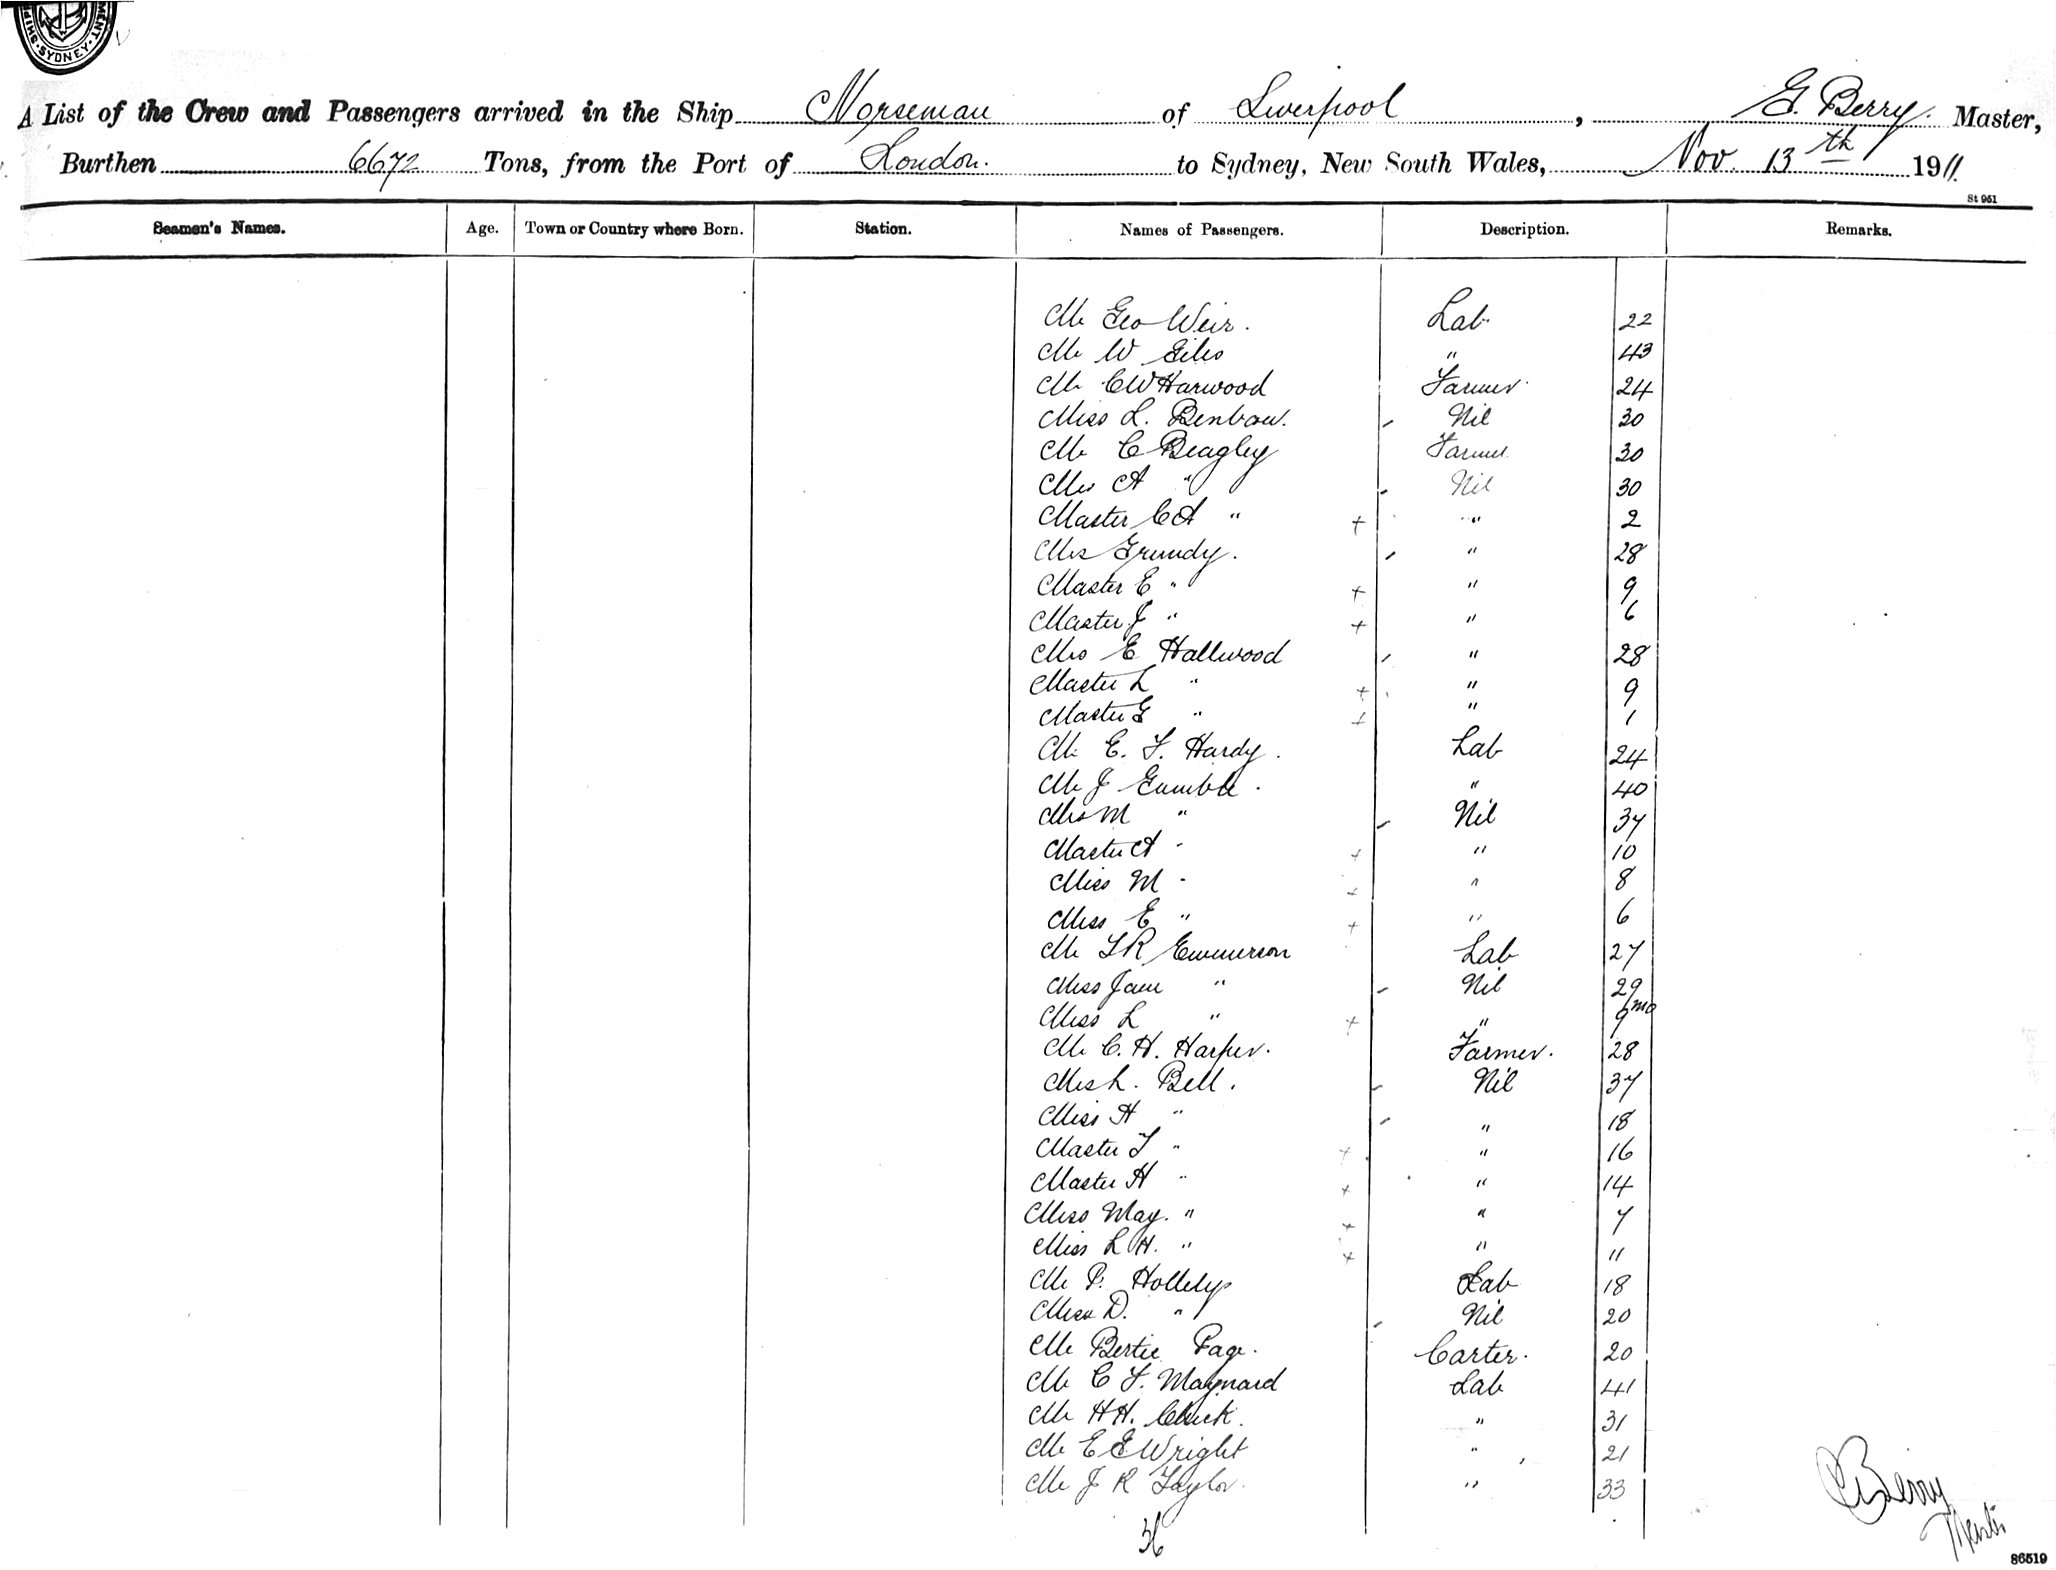 SYDNEY
A List of the Crew and Passengers arrived in the Ship Norseman of Liverpool, G. Berry. Master,
Burthen 6672 Tons, from the Port of London. to Sydney, New South Wales, Nov. 13th 1911.
St 951
Seamen's Names. Age. Town or Country where Born. Station. Names of Passengers. Description. Remarks.
Mr Geo Weir. Lab. 22
Mr W Giles " 43
Mr C W Harwood Farmer. 24
Miss L. Benbow. Nil 30
Mr C Beagley Farmer 30
Mrs A " Nil 30
Master C A " + " 2
Mrs Grundy. " 28
Master E " + " 9
Master J " + " 6
Mrs E Hallwood " 28
Master L " + " 9
Master G " + " 1
Mr E. F. Hardy. Lab 24
Mr J Gumble. " 40
Mrs M " Nil 37
Master A " + " 10
Miss M " + " 8
Miss E " + " 6
Mr F R Emmerson Lab 27
Miss Jane " Nil 29
Miss L " + " 9 mo
Mr C. H. Harper. Farmer. 28
Mrs L. Bell. Nil 37
Miss H " " 18
Master T " + " 16
Master H " + " 14
Miss May. " + " 7
Miss L H. " + " 11
Mr P. Lab 18
Miss D. " Nil 20
Mr Bertie Page. Carter. 20
Mr C F. Maynard Lab 41
Mr H H. Chick. " 31
Mr E E Wright " 21
Mr J R Taylor. " 33
36
Berry
Master
86519